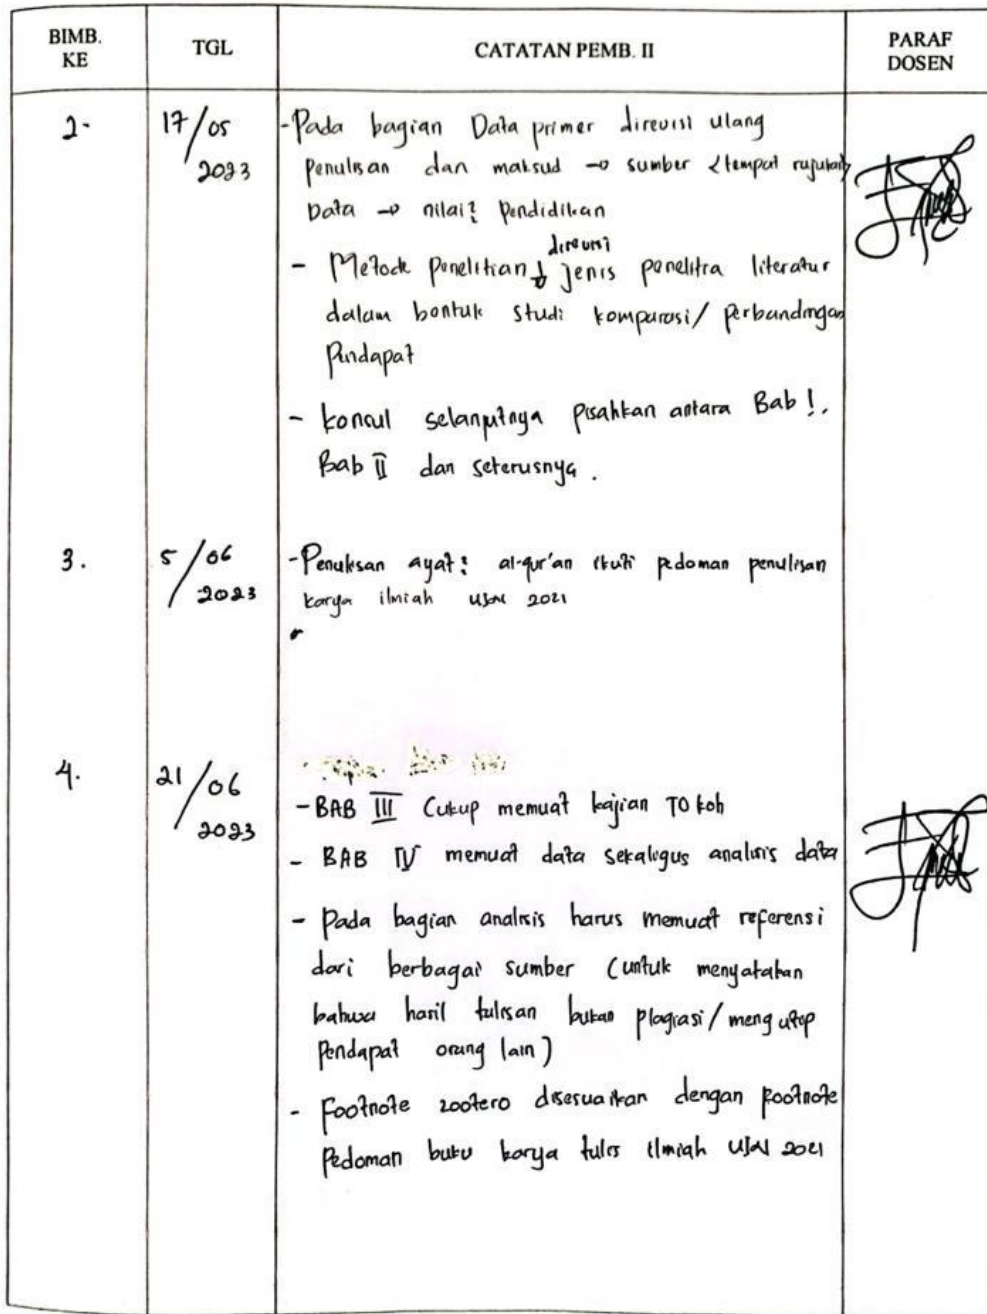 BIMB. KE
TGL
CATATAN PEMB. II
PARAF DOSEN
2.
17/05 2023
- Pada bagian Data primer direvisi ulang
penulisan dan maksud → sumber (tempat rujukan)
Data → nilai² pendidikan
direvisi
- Metode penelitian ↓ jenis penelitra literatur
dalam bentuk studi komparasi/perbandingan
Pendapat
- konsul selanjutnya pisahkan antara Bab I.
Bab II dan seterusnya.
3.
5/06 2023
- Penulisan ayat² al-qur'an ikuti pedoman penulisan
karya ilmiah 2021
4.
21/06 2023
- BAB III Cukup memuat kajian TOkoh
- BAB IV memuat data sekaligus analisis data
- Pada bagian analisis harus memuat referensi
dari berbagai sumber (untuk menyatakan
bahwa hasil tulisan bukan plagiasi/mengutip
Pendapat orang lain)
- Footnote zootero disesuaikan dengan footnote
Pedoman buku karya tulis ilmiah 2021